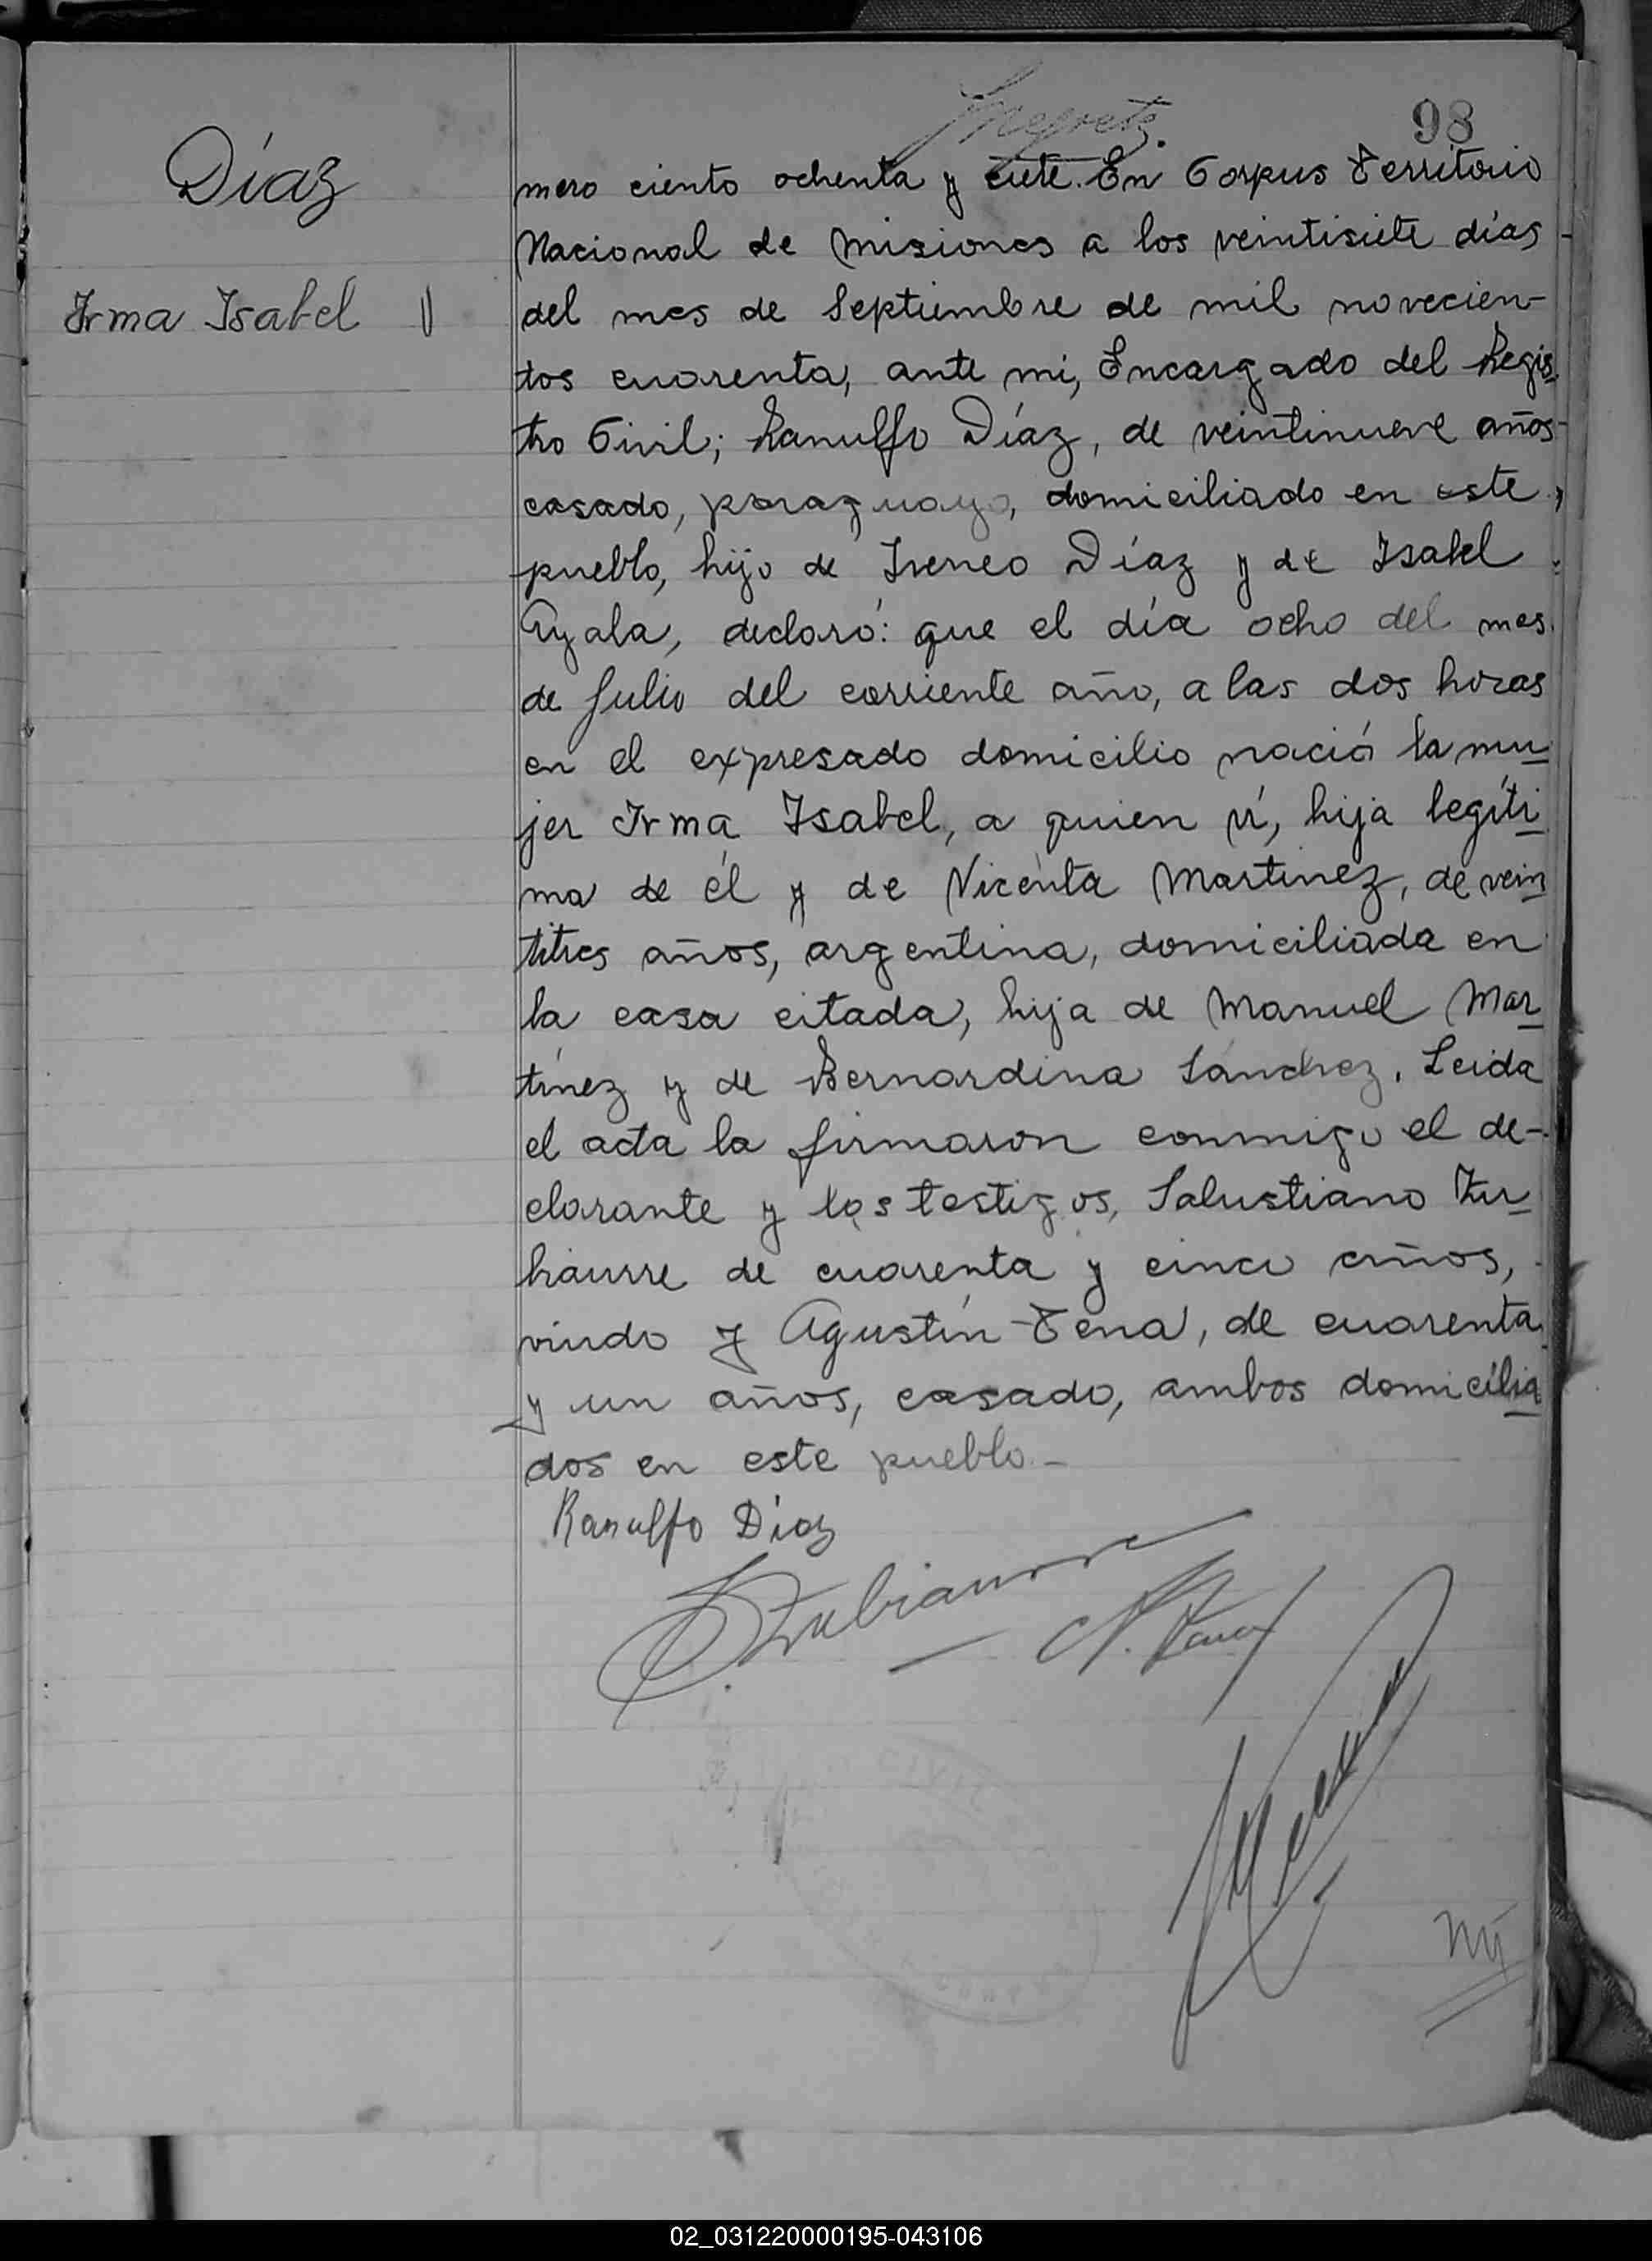 98
Díaz
Irma Isabel
mero ciento ochenta y siete. En Corpus Territorio
Nacional de Misiones a los veintisiete días
del mes de Septiembre de mil novecien-
tos cuarenta, ante mi, Encargado del Regis
tro Civil; Ranulfo Díaz, de veintinueve años
casado, paraguayo, domiciliado en este
pueblo, hijo de Ireneo Díaz y de Isabel
Ayala, declaró: que el día ocho del mes
de Julio del corriente año, a las dos horas
en el expresado domicilio nació la mu
jer Irma Isabel, a quien ví, hija legíti
ma de él y de Vicenta Martinez, de vein
titres años, argentina, domiciliada en
la casa citada, hija de Manuel Mar
tínez y de Bernardina Sánchez. Leida
el acta la firmaron conmigo el de-
clarante y los testigos, Salustiano Zu
biaurre de cuarenta y cinco años,
viudo y Agustín Tena, de cuarenta
y un años, casado, ambos domicilia
dos en este pueblo.-
Ranulfo Díaz
S. Zubiaurre
CIVIL
02_031220000195-043106